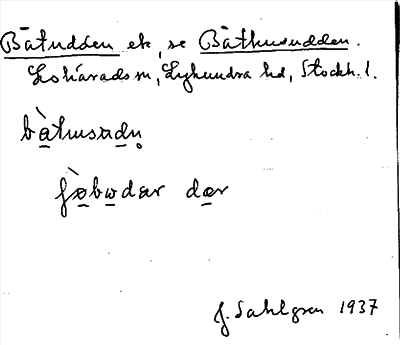 Båtudden ek, se Båthusudden.
Lohärads sn, Lyhundra hd, Stockh. l.
bàtusudn̥
fàbodar dar
J. Sahlgren 1937